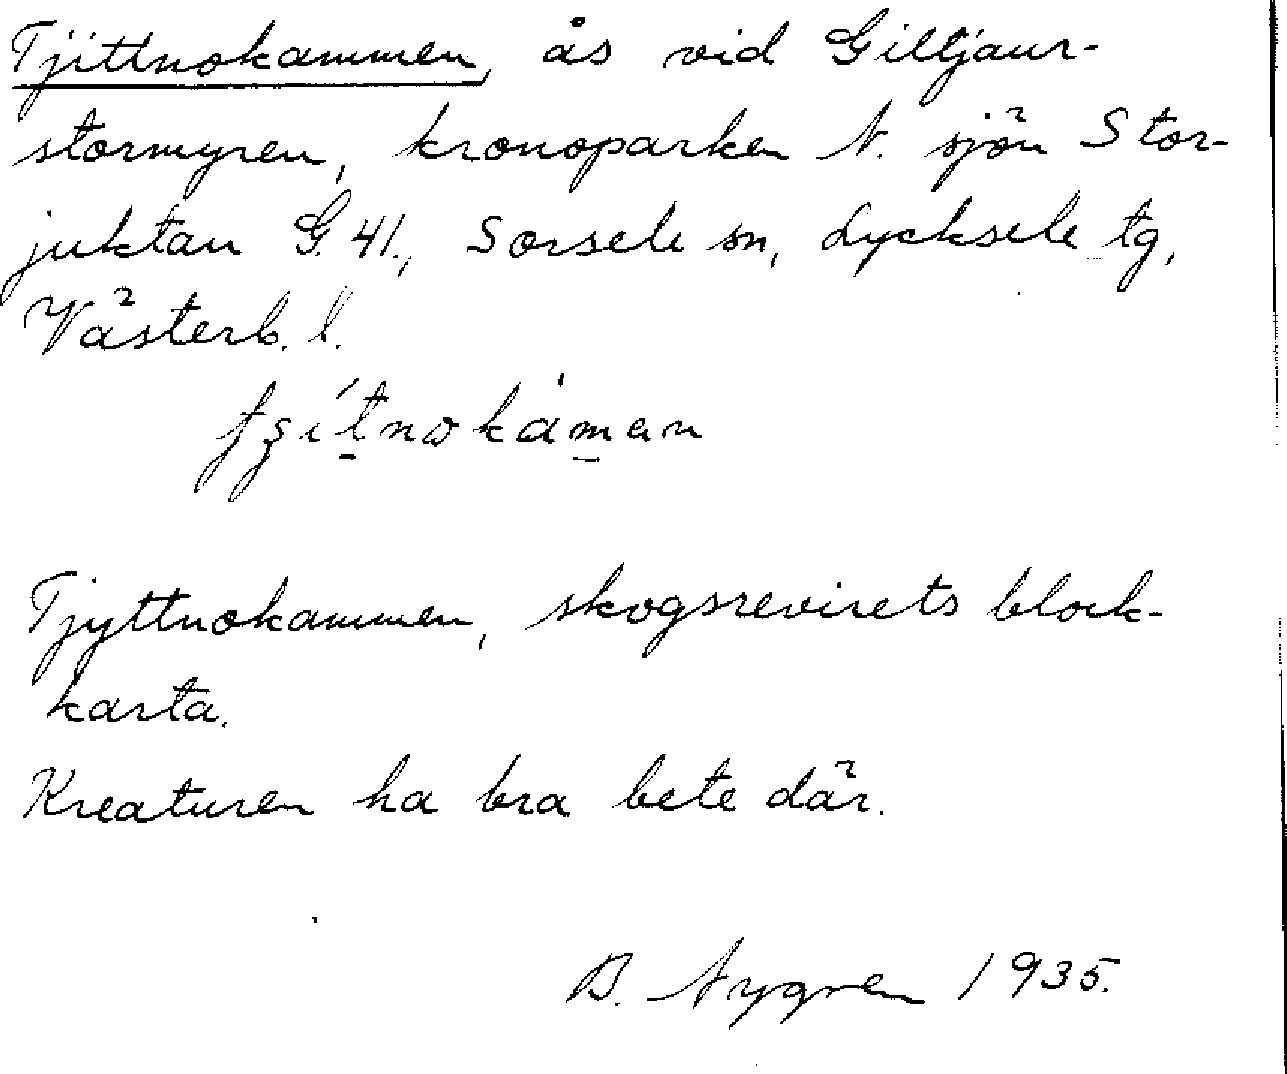 Tjittnokammen, ås vid Giltjaur-
stormyren, kronoparken N. sjön Stor-
juktan G. 41., Sorsele sn, Lycksele tg,
Västerb. l.
Tjyttnokammen, skogsrevirets block-
karta.
Kreaturen ha bra bete där.
B. Nygren 1935.